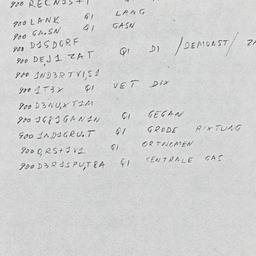 900 RECNIS+1
900 LANK QI LANG
900 GA.SN QI GASN
900 DISDORF
900 DEJ1 ZAT QI DI /DEMONST/ ZA
900 IND3RTVI,S1
900 IT3X QI VET DIX
900 D3NU,XTIM
900 IG8IGANIN QI GEGAN
900 INDIGRU,T QI GRODE RIXTUNG
900 O,RS+IVI QI ORTNOMEN
900 D3RISPU,T8A QI CENTRALE GAS